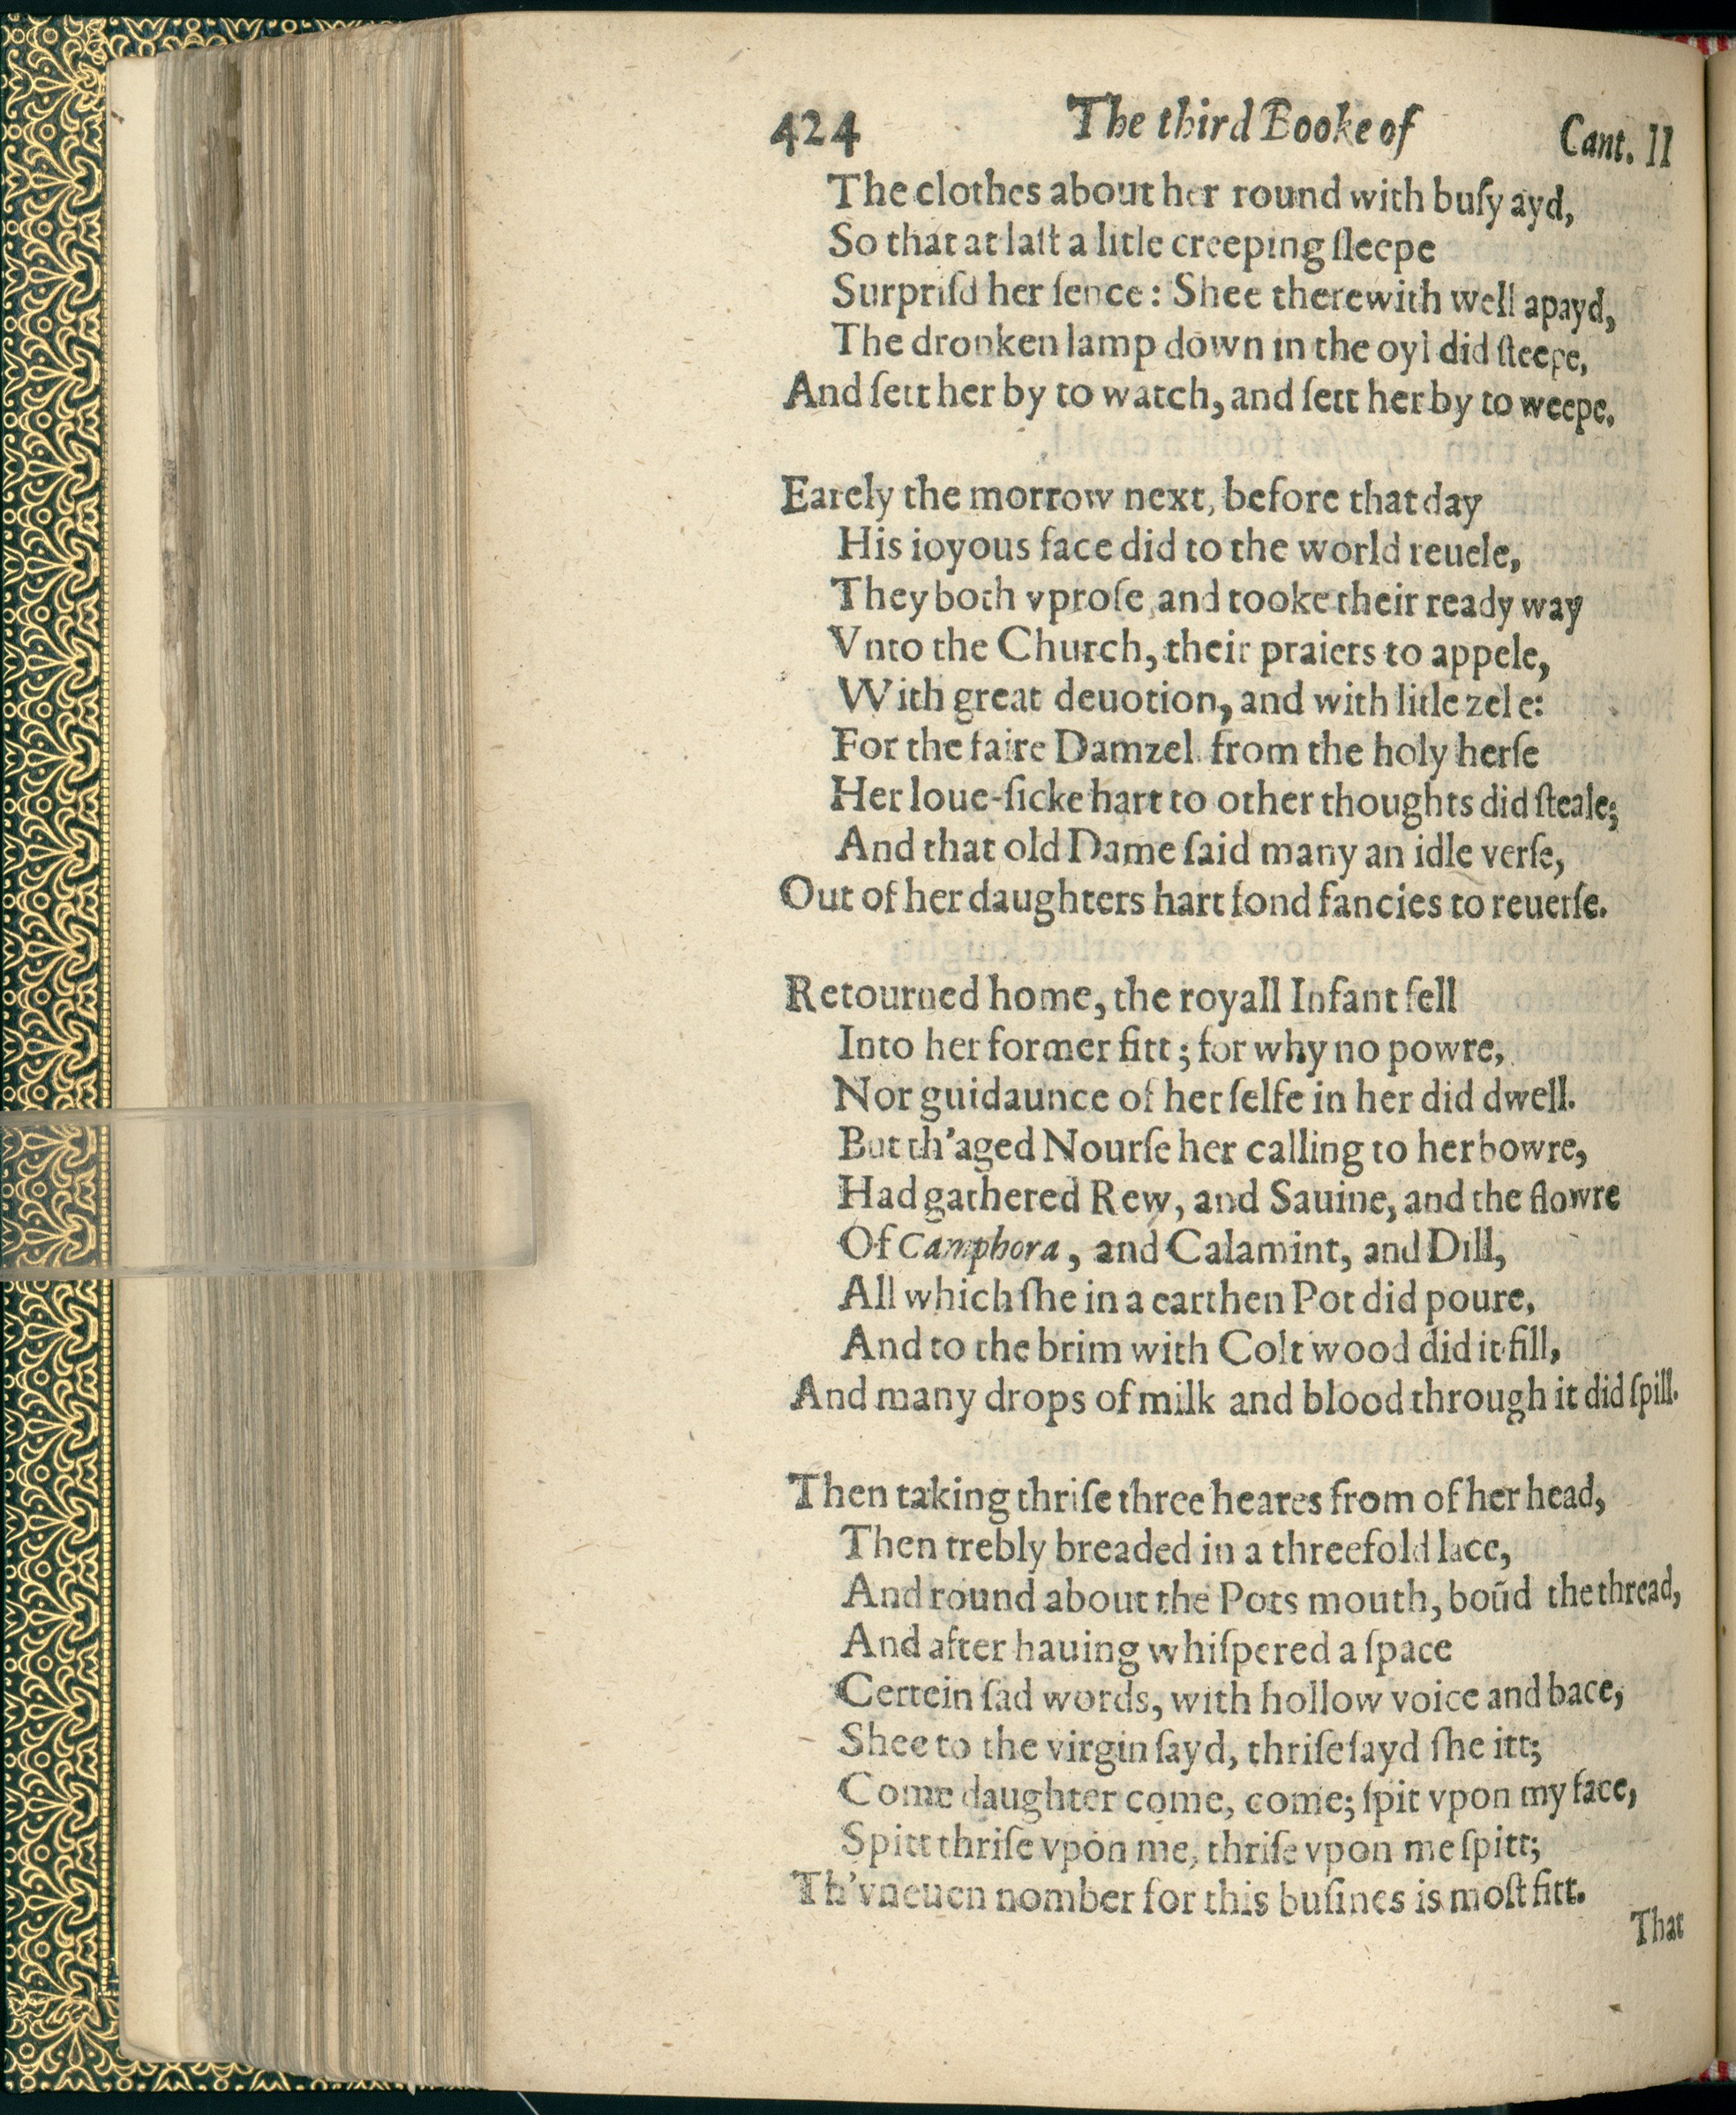 424 The third Booke of Cant. II
The clothes about her round with buſy ayd,
So that at laſt a litle creeping ſleepe
Surpriſd her ſence: Shee therewith well apayd,
The dronken lamp down in the oyl did ſteepe,
And ſett her by to watch, and ſett her by to weepe.
Earely the morrow next, before that day
His ioyous face did to the world reuele,
They both vproſe and tooke their ready way
Vnto the Church, their praiers to appele,
With great deuotion, and with litle zele:
For the faire Damzel from the holy herſe
Her loue-ſicke hart to other thoughts did ſteale;
And that old Dame ſaid many an idle verſe,
Out of her daughters hart fond fancies to reuerſe.
Retourned home, the royall Infant fell
Into her former fitt; for why no powre,
Nor guidaunce of her ſelfe in her did dwell.
But th'aged Nourſe her calling to her bowre,
Had gathered Rew, and Sauine, and the flowre
Of Camphora, and Calamint, and Dill,
All which ſhe in a earthen Pot did poure,
And to the brim with Colt wood did it fill,
And many drops of milk and blood through it did ſpill.
Then taking thriſe three heares from of her head,
Then trebly breaded in a threefold lace,
And round about the Pots mouth, boũd the thread,
And after hauing whiſpered a ſpace
Certein ſad words, with hollow voice and bace,
Shee to the virgin ſayd, thriſe ſayd ſhe itt;
Come daughter come, come; ſpit vpon my face,
Spitt thriſe vpon me, thriſe vpon me ſpitt;
Th'vneuen nomber for this buſines is moſt fitt.
That